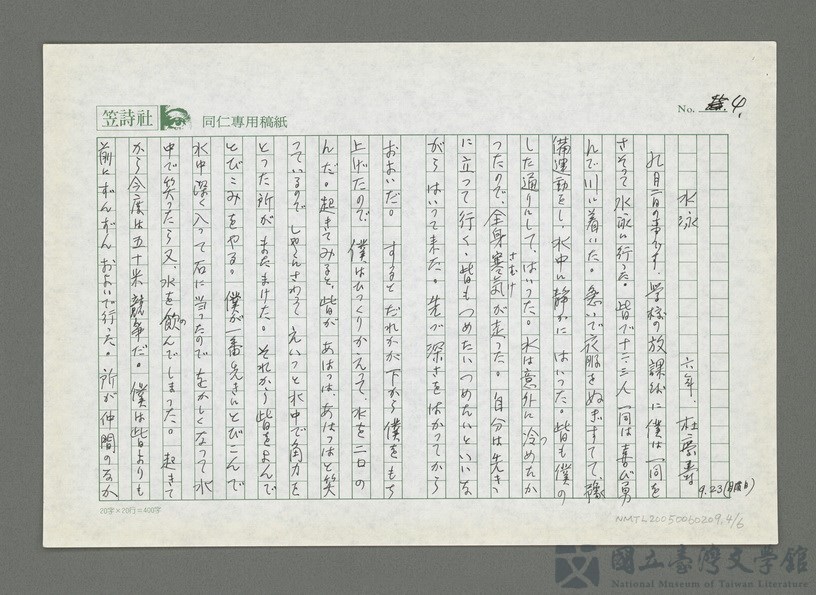 笠詩社
同仁專用稿紙
No. 4.
水泳
六年. 杜
9.23(月曜日)
九月二日の事です。学校の放課後に僕は一同を
さそって水泳に行った。皆で十二三人一同は喜び勇
んで川に着いた。急いで衣服をぬぎすてて、
備運動をし、水中に静かにはいった。皆も僕の
した通りにして、はいった。水は意外に冷めたか
ったので、全身寒気が走った。自分は先き
さむけ
に立って行く、皆もつめたいつめたいといいな
がらはいって来た。先づ深さをはかってから
およいだ。するとだれかが下から僕をもち
上げたので、僕はひっくりかえって、水を二口の
んだ。起きてみると、皆があはっは、あはっはと笑
っているので、しゃくにさわってえいっと水中で角力を
とった所がまたまけた。それから皆をよんで
とびこみをやる。僕が一番先きにとびこんで
水中深く入って石に当ったのでをかしくなって水
中で笑ったら又、水を飲んでしまった。起きて
から今度は五十米競争だ。僕は皆よりも
前にずんずんおよいで行った。所が仲間のなか
20字×20行=400字
NMTL20050060209.4/6
國立臺灣文學館
National Museum of Taiwan Literature